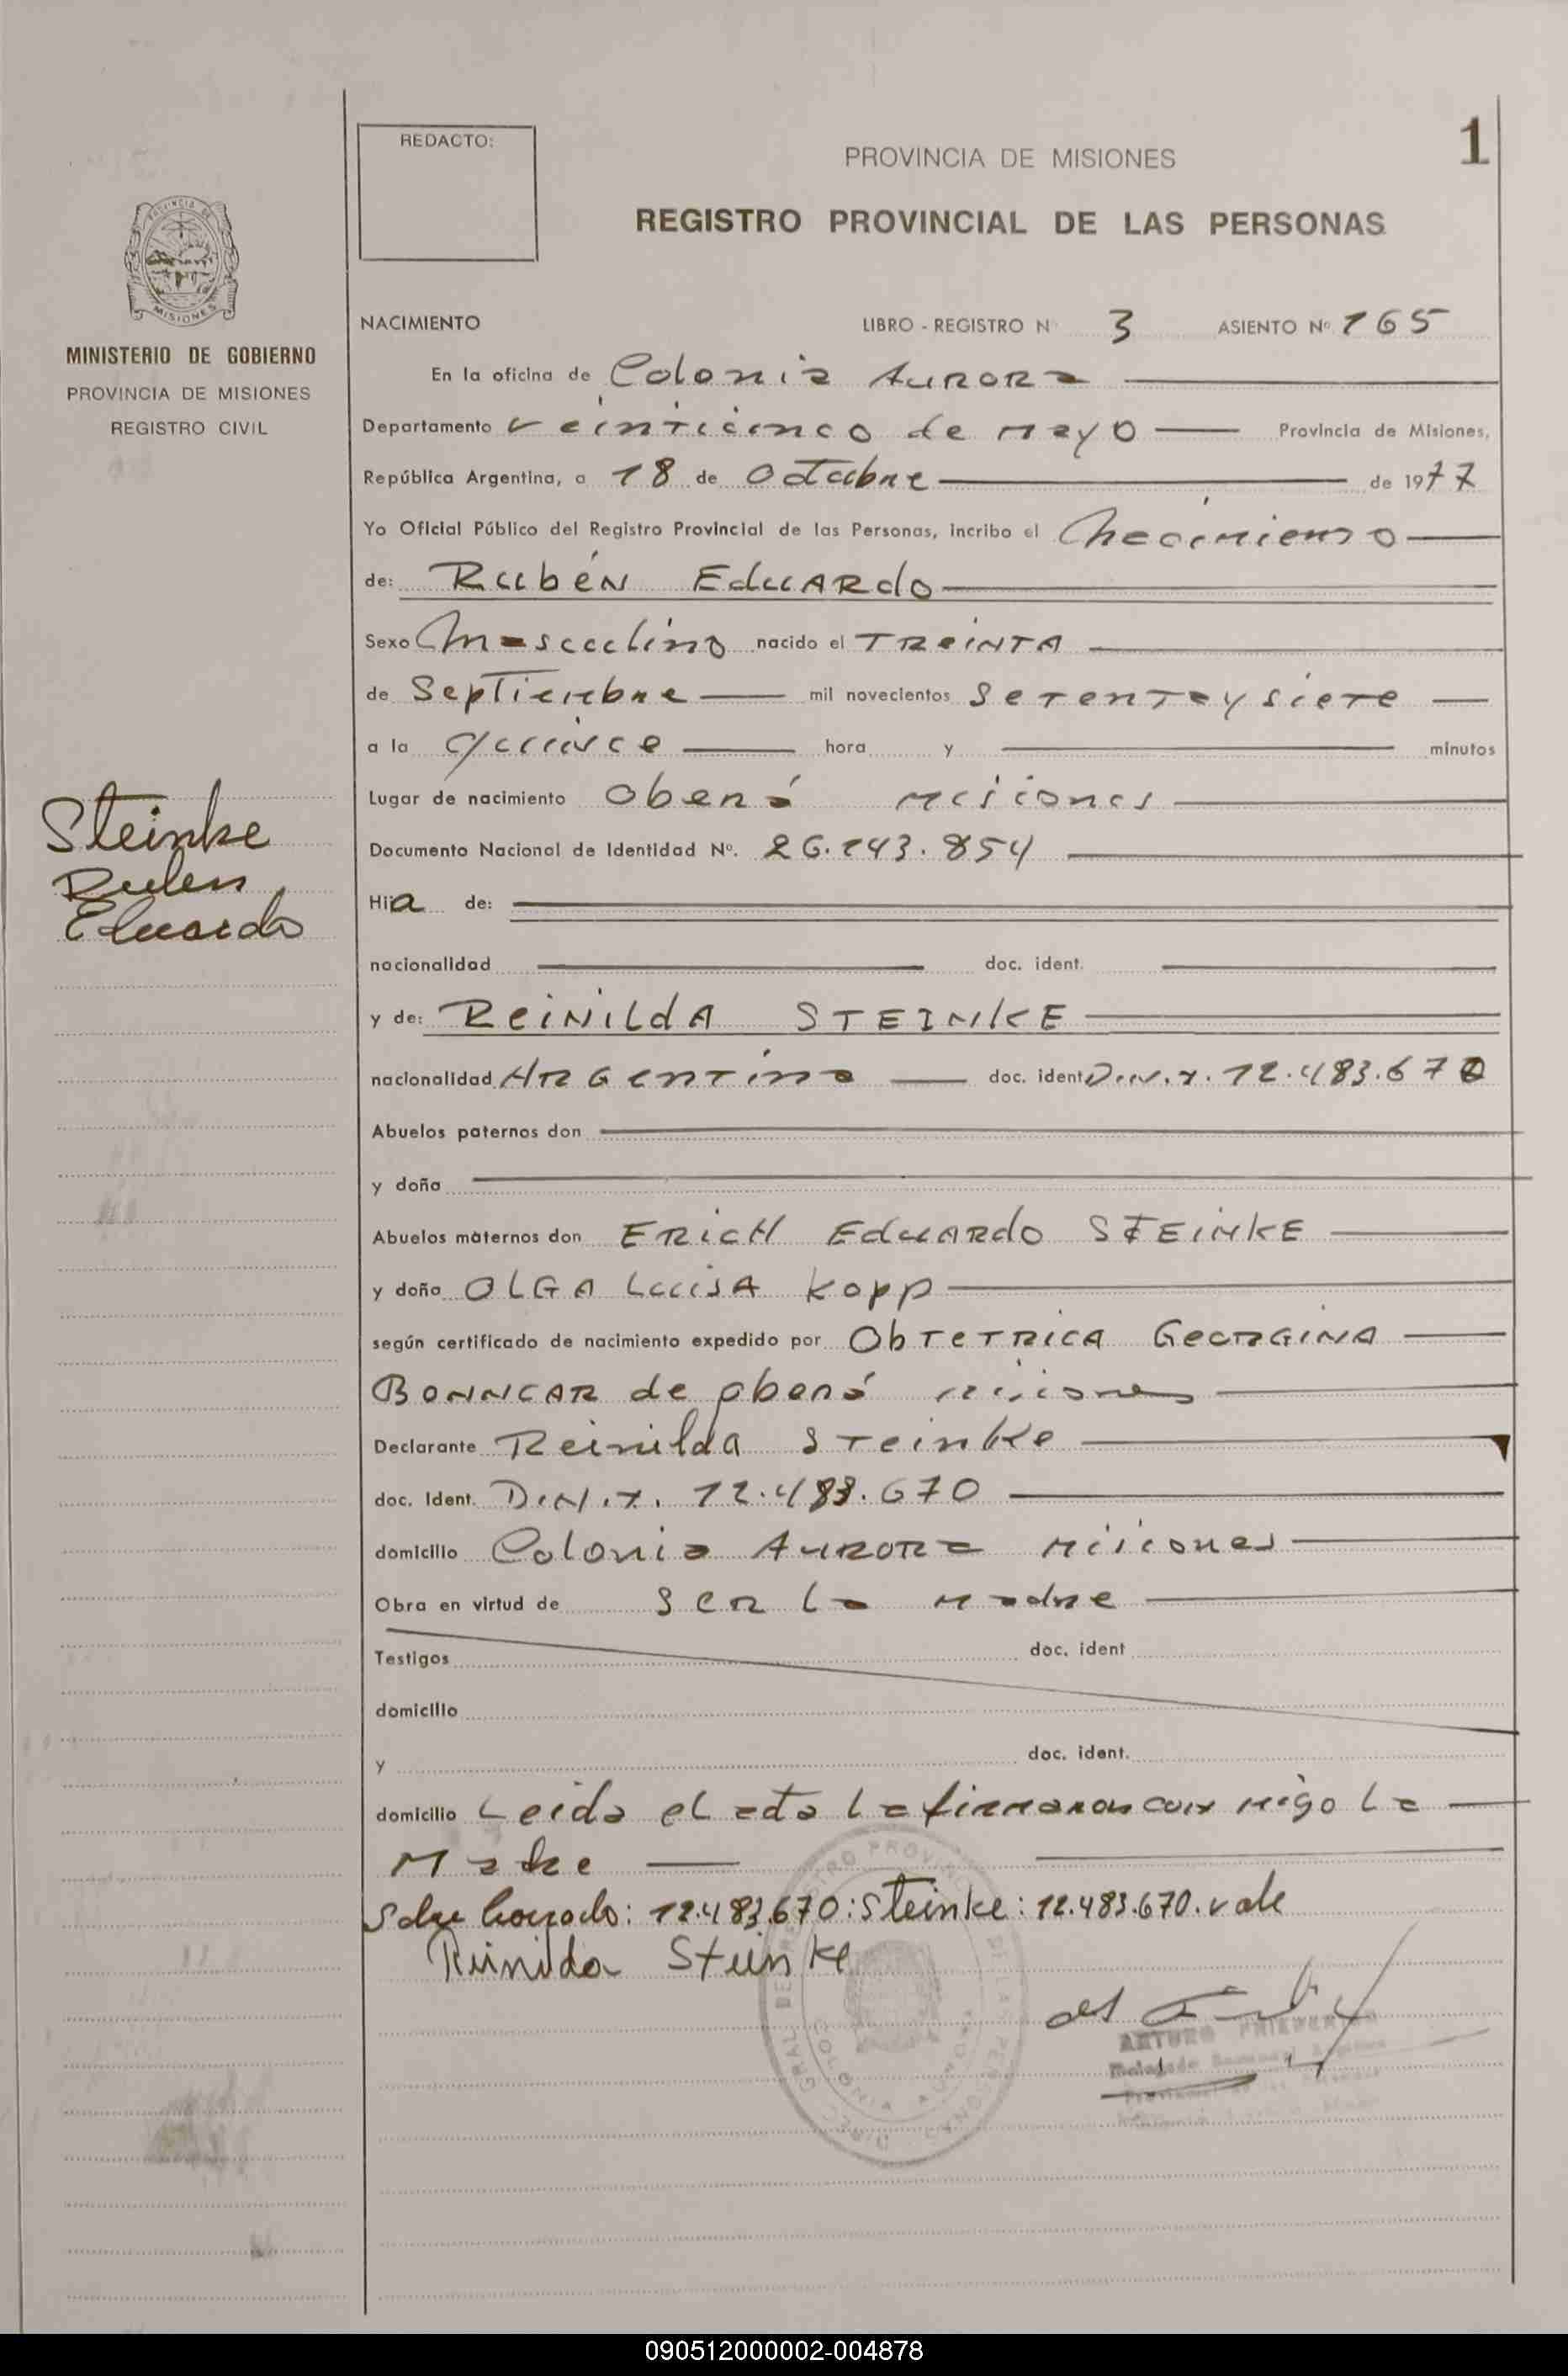 REDACTO:
1
PROVINCIA DE MISIONES
REGISTRO PROVINCIAL DE LAS PERSONAS
PROVINCIA DE
MISIONES
MINISTERIO DE GOBIERNO
PROVINCIA DE MISIONES
REGISTRO CIVIL
NACIMIENTO LIBRO - REGISTRO Nº 3 ASIENTO Nº 165
En la oficina de Colonia Aurora
Departamento veinticinco de mayo Provincia de Misiones,
República Argentina, a 18 de Octubre de 1977
Yo Oficial Público del Registro Provincial de las Personas, incribo el Nacimiento
de: Rubén Eduardo
Sexo Masculino nacido el TReiNTA
de Septiembre mil novecientos Setenta y siete
a la quince hora y minutos
Lugar de nacimiento Oberá Misiones
Steinke
Ruben
Eduardo
Documento Nacional de Identidad Nº. 26.143.854
Hija de:
nacionalidad doc. ident.
y de: REiNILdA STEINKE
nacionalidad ARGentina doc. ident. D.N.I. 12.483.670
Abuelos paternos don
y doña
Abuelos maternos don ERicH EduARdo STEiNKE
y doña OLGA LuisA Kopp
según certificado de nacimiento expedido por ObTeTRicA GeoRGiNA
BONNCAR de oberá misiones
Declarante Reinilda Steinke
doc. Ident. D.N.I. 12.483.670
domicilio Colonia Aurora Misiones
Obra en virtud de ser la madre
Testigos doc. ident
domicilio
y doc. ident.
domicilio Leida el acta la firmaron con migo la
Madre
Sobre borrado: 12.483.670: Steinke: 12.483.670. vale
Reinilda Steinke
ARTURO
COLONIA AURORA
090512000002-004878